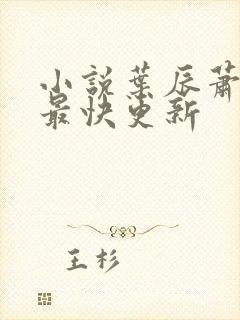 小說葉辰蕭
最快更新
王杉